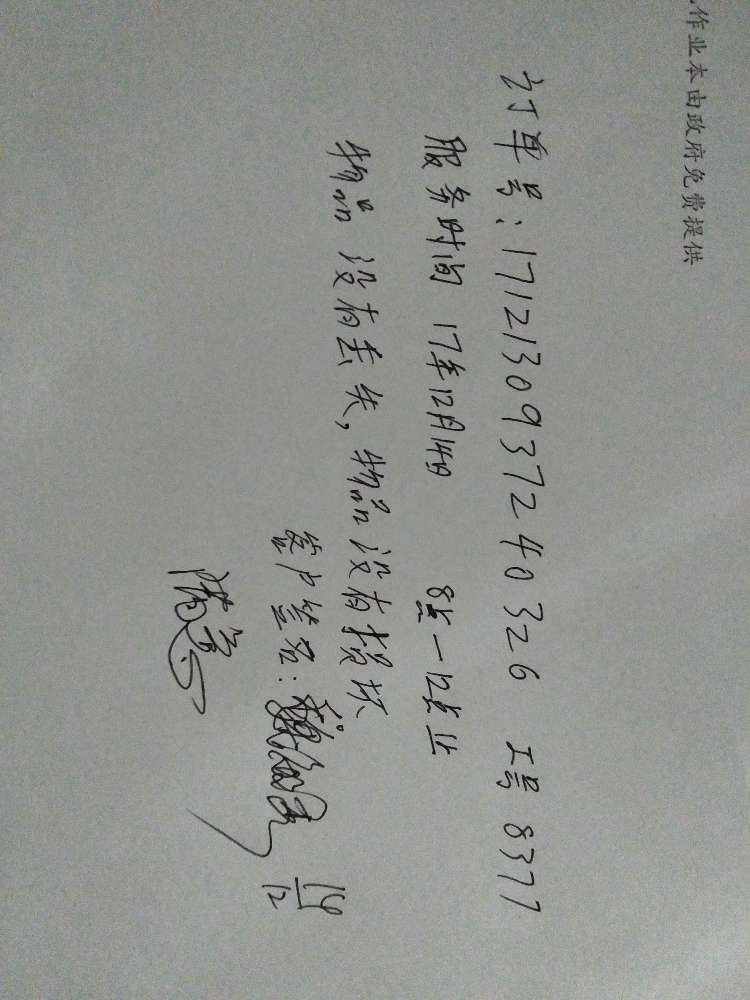 作业本由政府免费提供
订单号:1712130937240326 工号8377
服务时间 17年12月14日 8点—12点止
物品没有丢失,物品没有损坏
客户签名:
14/12